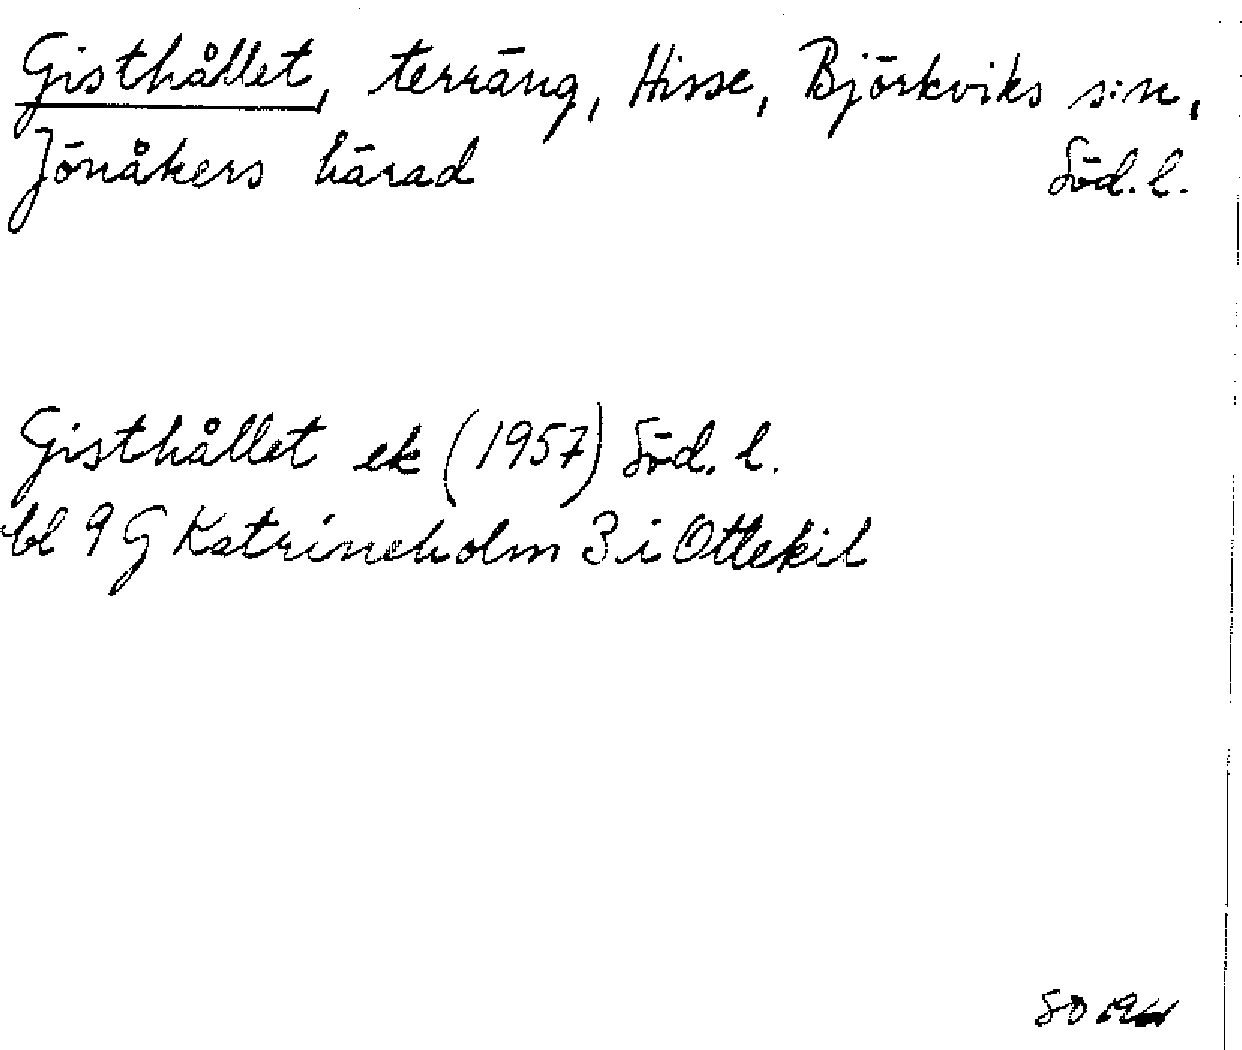 Gisthållet, terräng, Hisse, Björkviks s:n,
Jönåkers härad Söd. l.
Gisthållet ek (1957) Söd. l.
bl 9 G Katrineholm 3 i Ottekil
SO